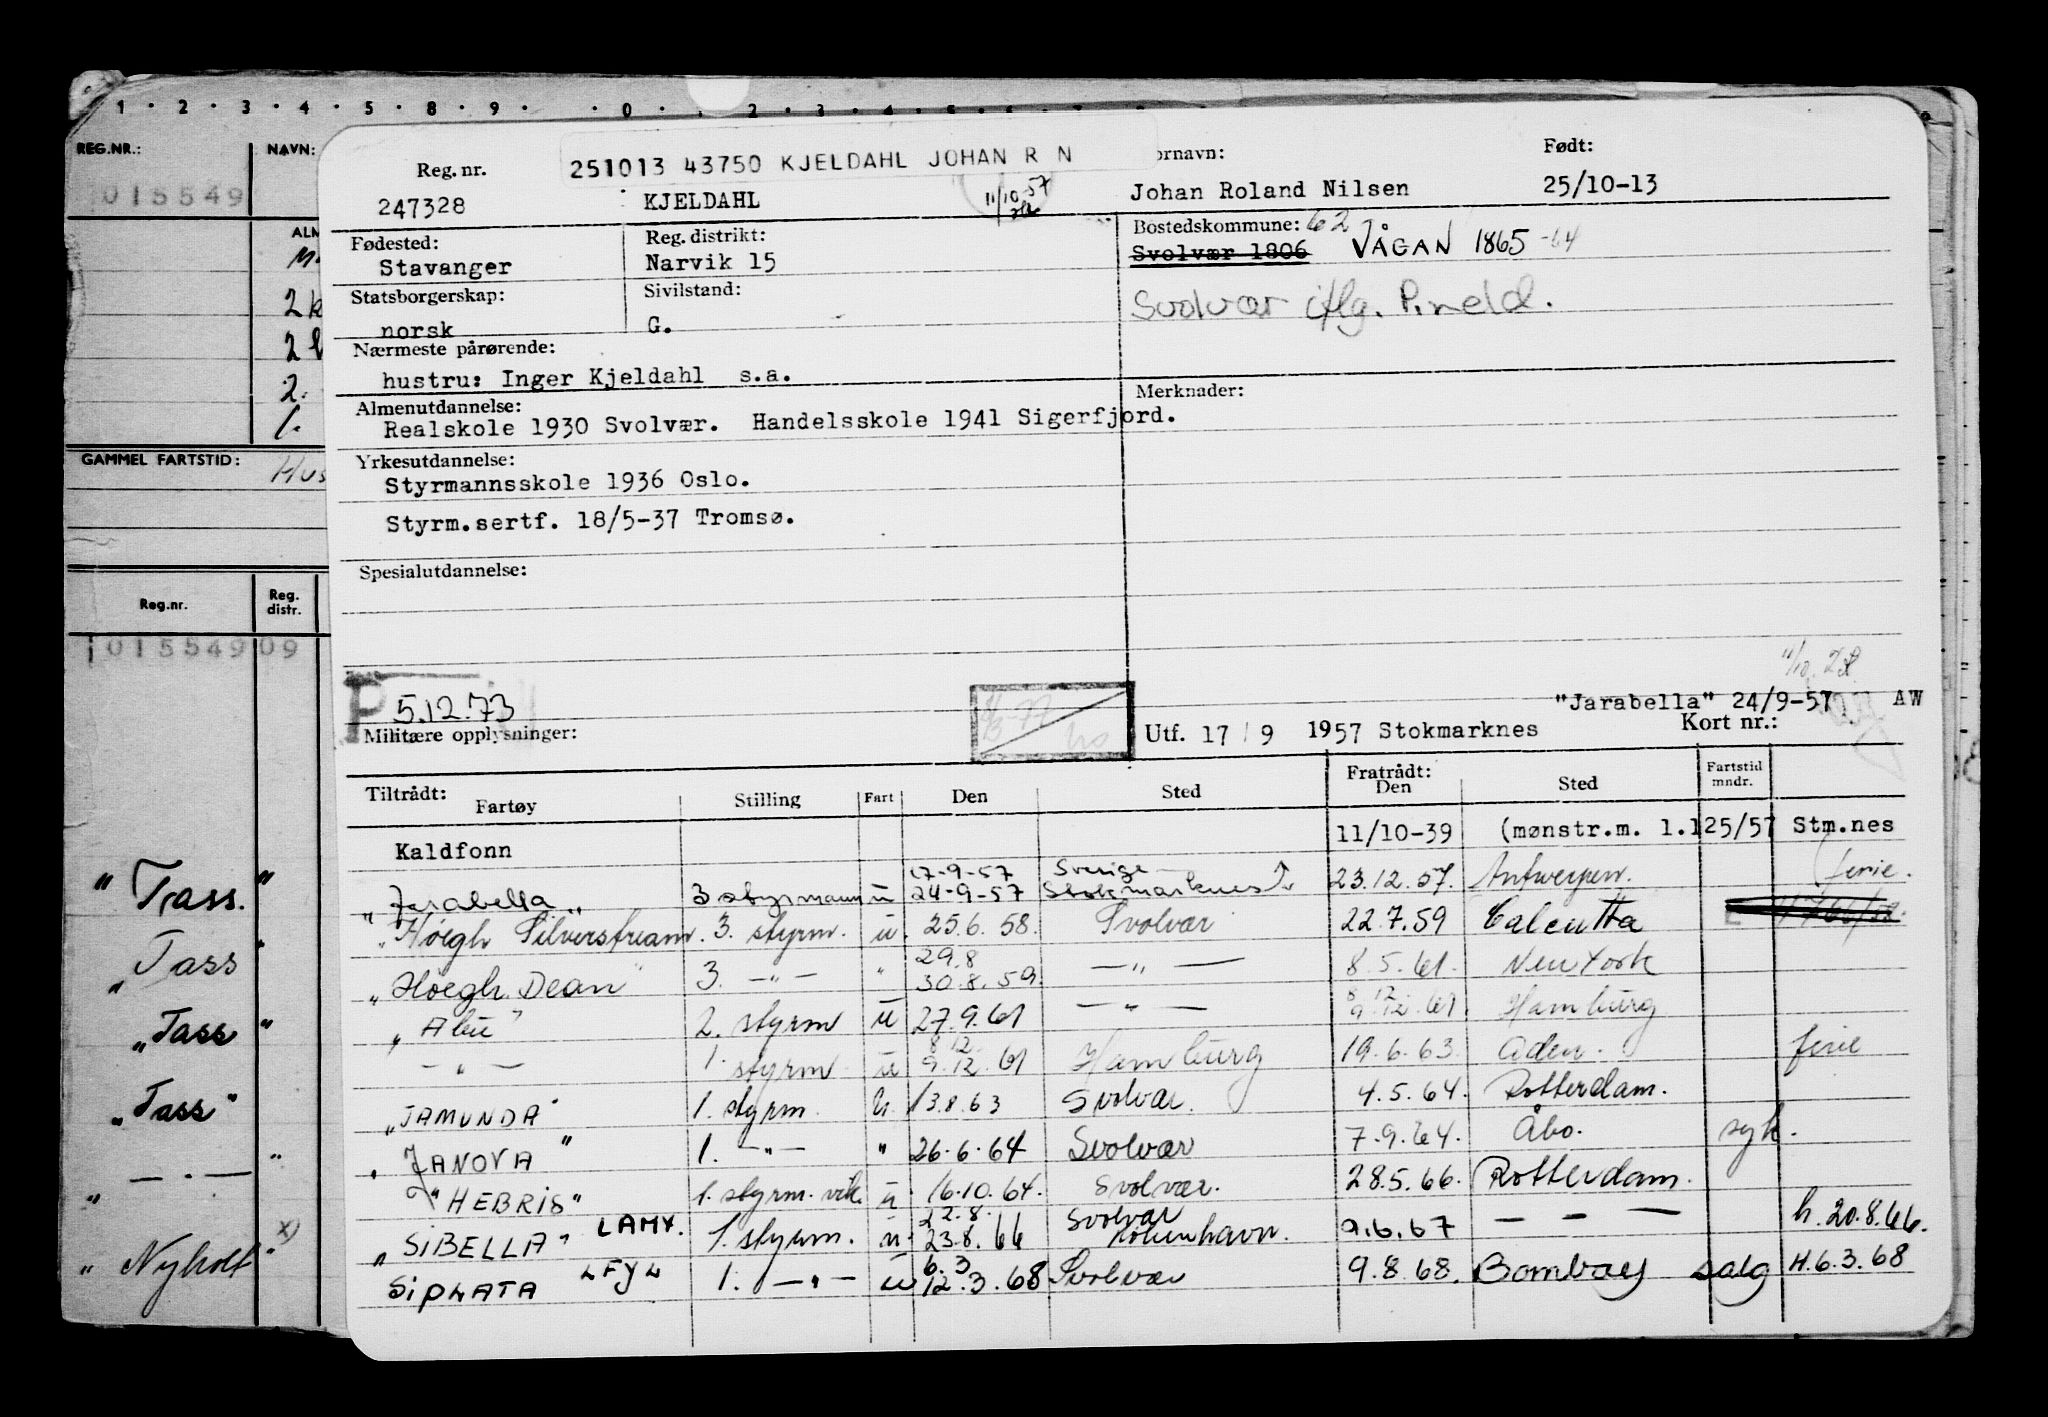 1 · 2 · 3 · 4 · 5 · 8 · 9 · · 0 · · 2 · 3 · 4 · 5
REG.NR.: NAVN:
015549
GAMMEL FARTSTID:
Reg.nr. Reg. distr.
015549 09
" Trass. "
" Tass "
" Tass "
" Tass "
— " — "
" Nyholt " x)
251013 43750 KJELDAHL JOHAN R N
Reg. nr. ornavn: Født:
247328 KJELDAHL 11/10-57 Johan Roland Nilsen 25/10-13
Fødested: Reg. distrikt: Bostedskommune: 62
Stavanger Narvik 15 Svolvær 1806 VÅGAN 1865 -64
Statsborgerskap: Sivilstand: Svolvær iflg.
norsk G.
Nærmeste pårørende:
hustru: Inger Kjeldahl s.a.
Almenutdannelse: Merknader:
Realskole 1930 Svolvær. Handelsskole 1941 Sigerfjord.
Yrkesutdannelse:
Styrmannsskole 1936 Oslo.
Styrm.sertf. 18/5-37 Tromsø.
Spesialutdannelse:
P 5.12.73 "Jarabella" 24/9-57 AW
Militære opplysninger: Utf. 17 / 9 1957 Stokmarknes Kort nr.:
Tiltrådt: Fartøy Stilling Fart Den Sted Fratrådt: Den Sted Fartstid mndr.
Kaldfonn 11/10-39 (mønstr.m. 1.125/57 Stm.nes
17-9-57 Sverige
" Jarabella " 3 styrmann u 24-9-57 Stokmarknes 23.12.57. Antwerpen. ferie.
" Höegh Silverstream. 3. styrm. u. 25.6.58. Svolvær 22.7.59 Calcutta
29.8
" Höegh Dean " 3. — " — " 30.8.59. — " — 8.5.61. New York
8 12
" Abu " 2. styrm u 27.9.61 — " — 9.12.61. Hamburg
8 12.
— " — 1. styrm u 9.12.61 Hamburg 19.6.63. Aden. ferie
" JAMUNDA " 1. styrm. u. 13.8.63 Svolvær. 4.5.64. Rotterdam.
" JANOVA " 1. — " — " 26.6.64 Svolvær 7.9.64. Åbo. syk.
"HEBRIS" 1. styrm. vik. u 16.10.64. Svolvær. 28.5.66. Rotterdam.
22.8. Svolvær
" SIBELLA " LAMY. 1. styrm. u. 23.8.66 København. 9.6.67 — — — h. 20.8.66.
6.3
SIPLATA LFYL 1. — " — u 12.3.68 Svolvær 9.8.68. Bombay salg H.6.3.68